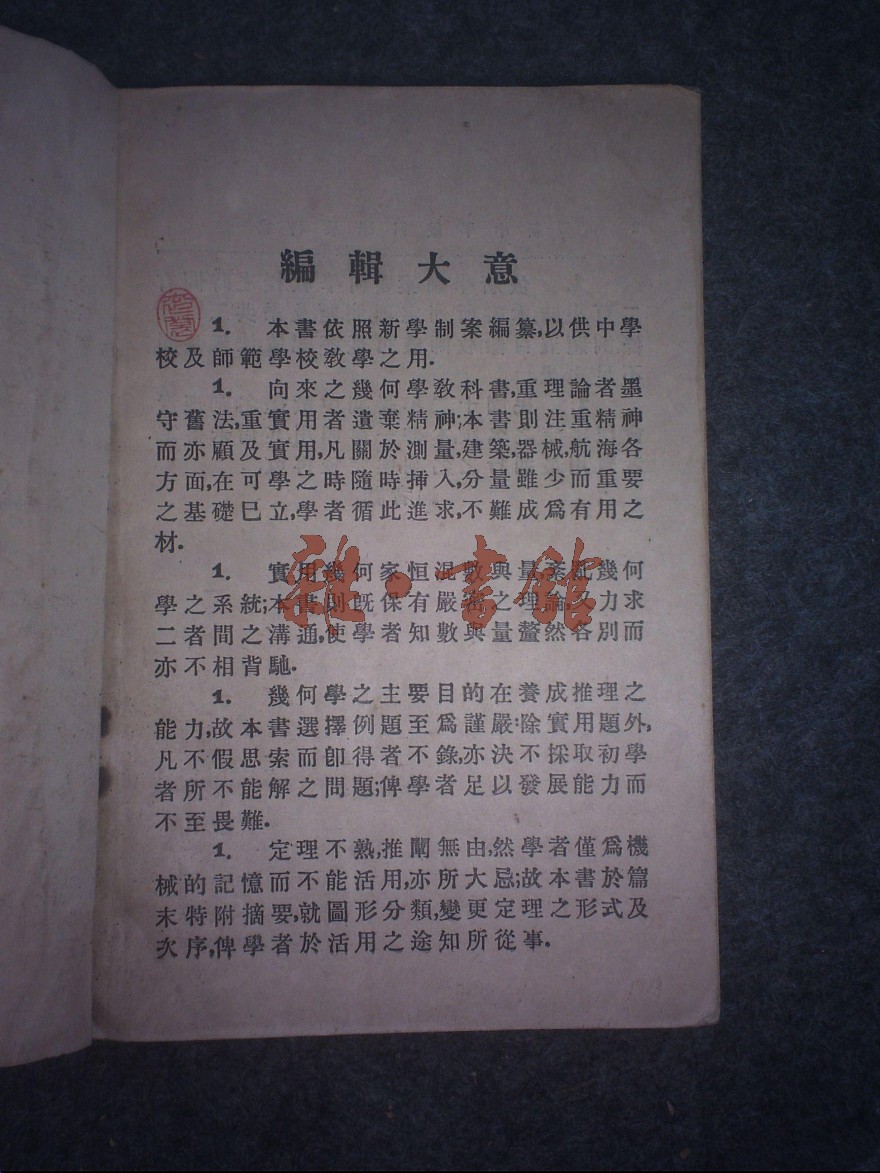 編輯大意
1. 本書依照新學制案編纂,以供中學
校及師範學校教學之用.
1. 向來之幾何學教科書,重理論者墨
守舊法,重實用者遺棄精神;本書則注重精神
而亦顧及實用,凡關於測量,建築,器械,航海各
方面,在可學之時隨時揷入,分量雖少而重要
之基礎已立,學者循此進求,不難成爲有用之
材.
1. 實用幾何家恒混數與量紊亂幾何
學之系統;本書則旣保有嚴密之理論,又力求
二者間之溝通,使學者知數與量釐然各別而
亦不相背馳.
1. 幾何學之主要目的在養成推理之
能力,故本書選擇例題至爲謹嚴:除實用題外,
凡不假思索而卽得者不錄,亦決不採取初學
者所不能解之問題;俾學者足以發展能力而
不至畏難.
1. 定理不熟,推闡無由,然學者僅爲機
械的記憶而不能活用,亦所大忌;故本書於篇
末特附摘要,就圖形分類,變更定理之形式及
次序,俾學者於活用之途知所從事.
雜·書館